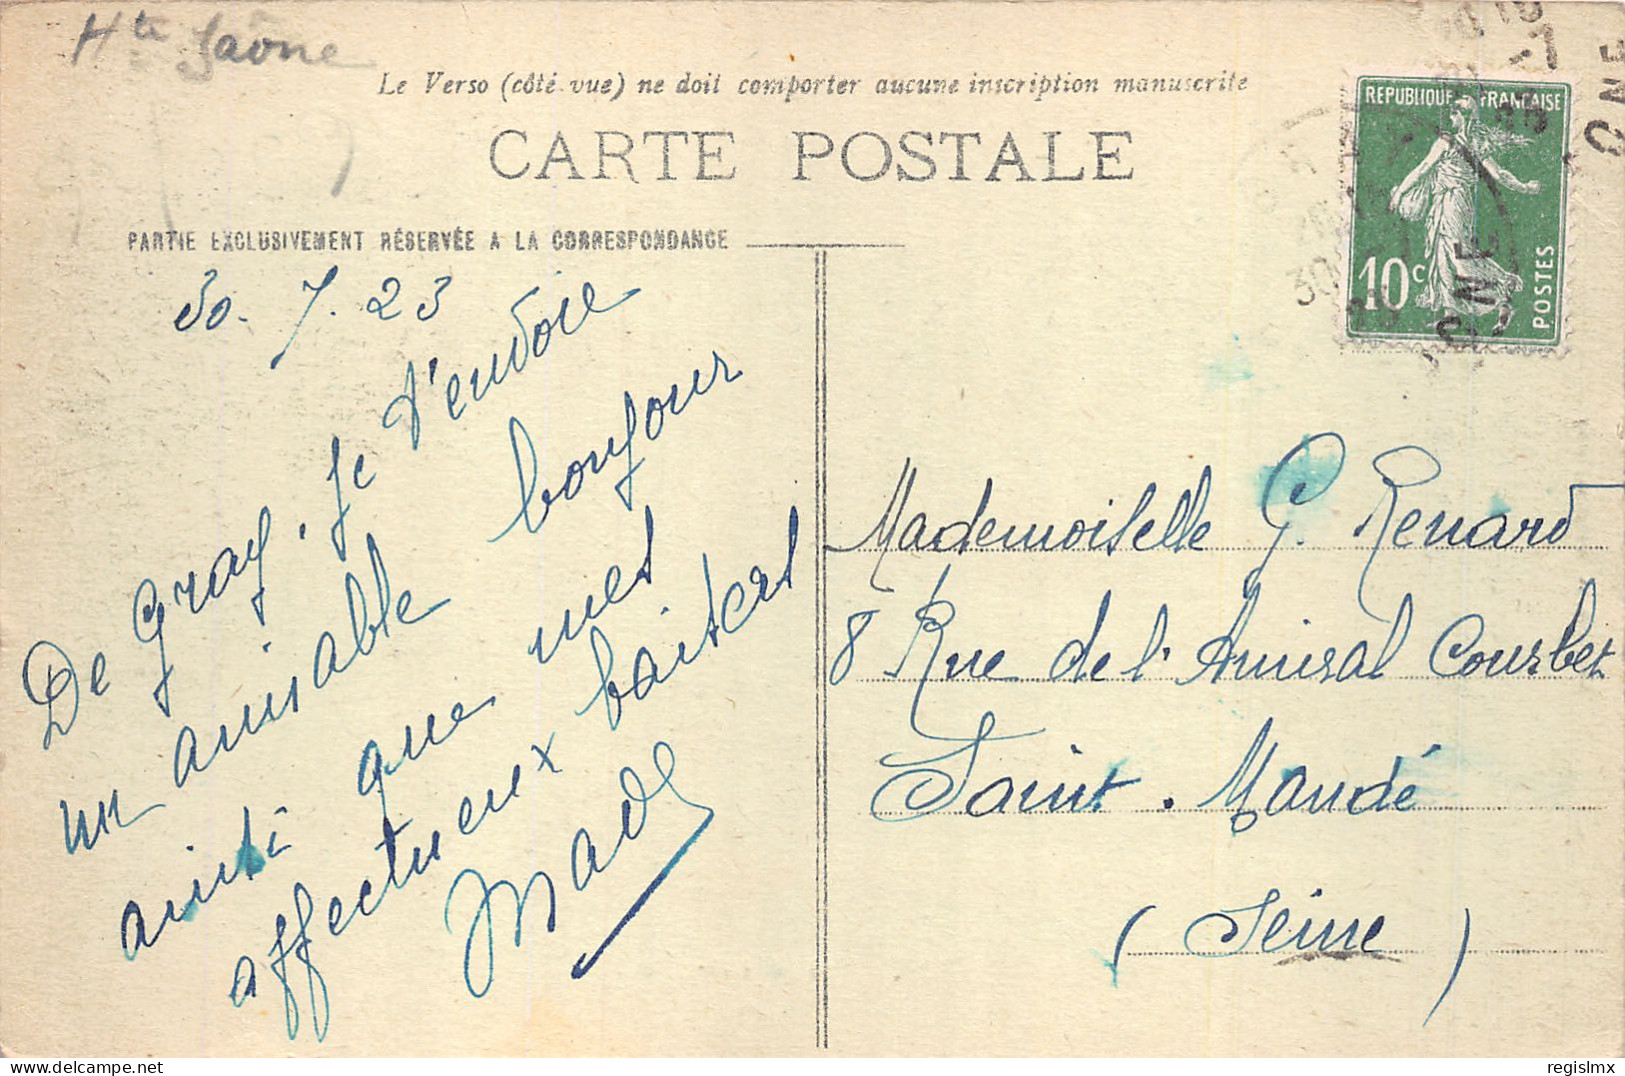 Hte Saône
Le Verso (côté vue) ne doit comporter aucune inscription manuscrite
CARTE POSTALE
PARTIE EXCLUSIVEMENT RÉSERVÉE A LA CORRESPONDANCE
30. 7. 23
De Gray, je t'envoie
un aimable bonjour
ainsi que mes
affectueux baisers
Mado
REPUBLIQUE FRANCAISE
10c
POSTES
Mademoiselle G. Renard
8 Rue de l'Amiral Courbet
Saint. Mandé
(Seine)
regislmx